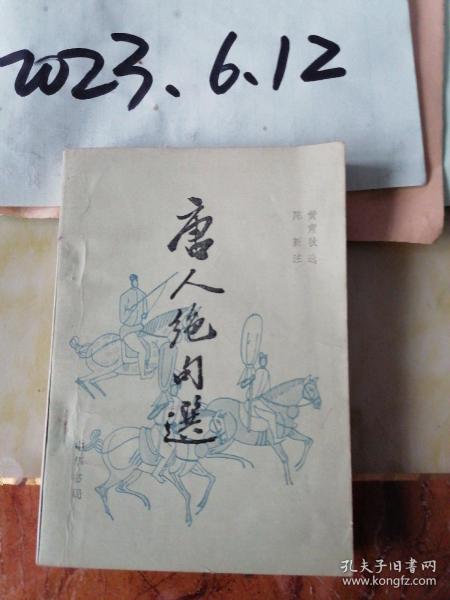 2023.6.12
唐人绝句選
黄肃秋选
陈新注
中华书局
孔夫子旧书网
www.kongfz.com